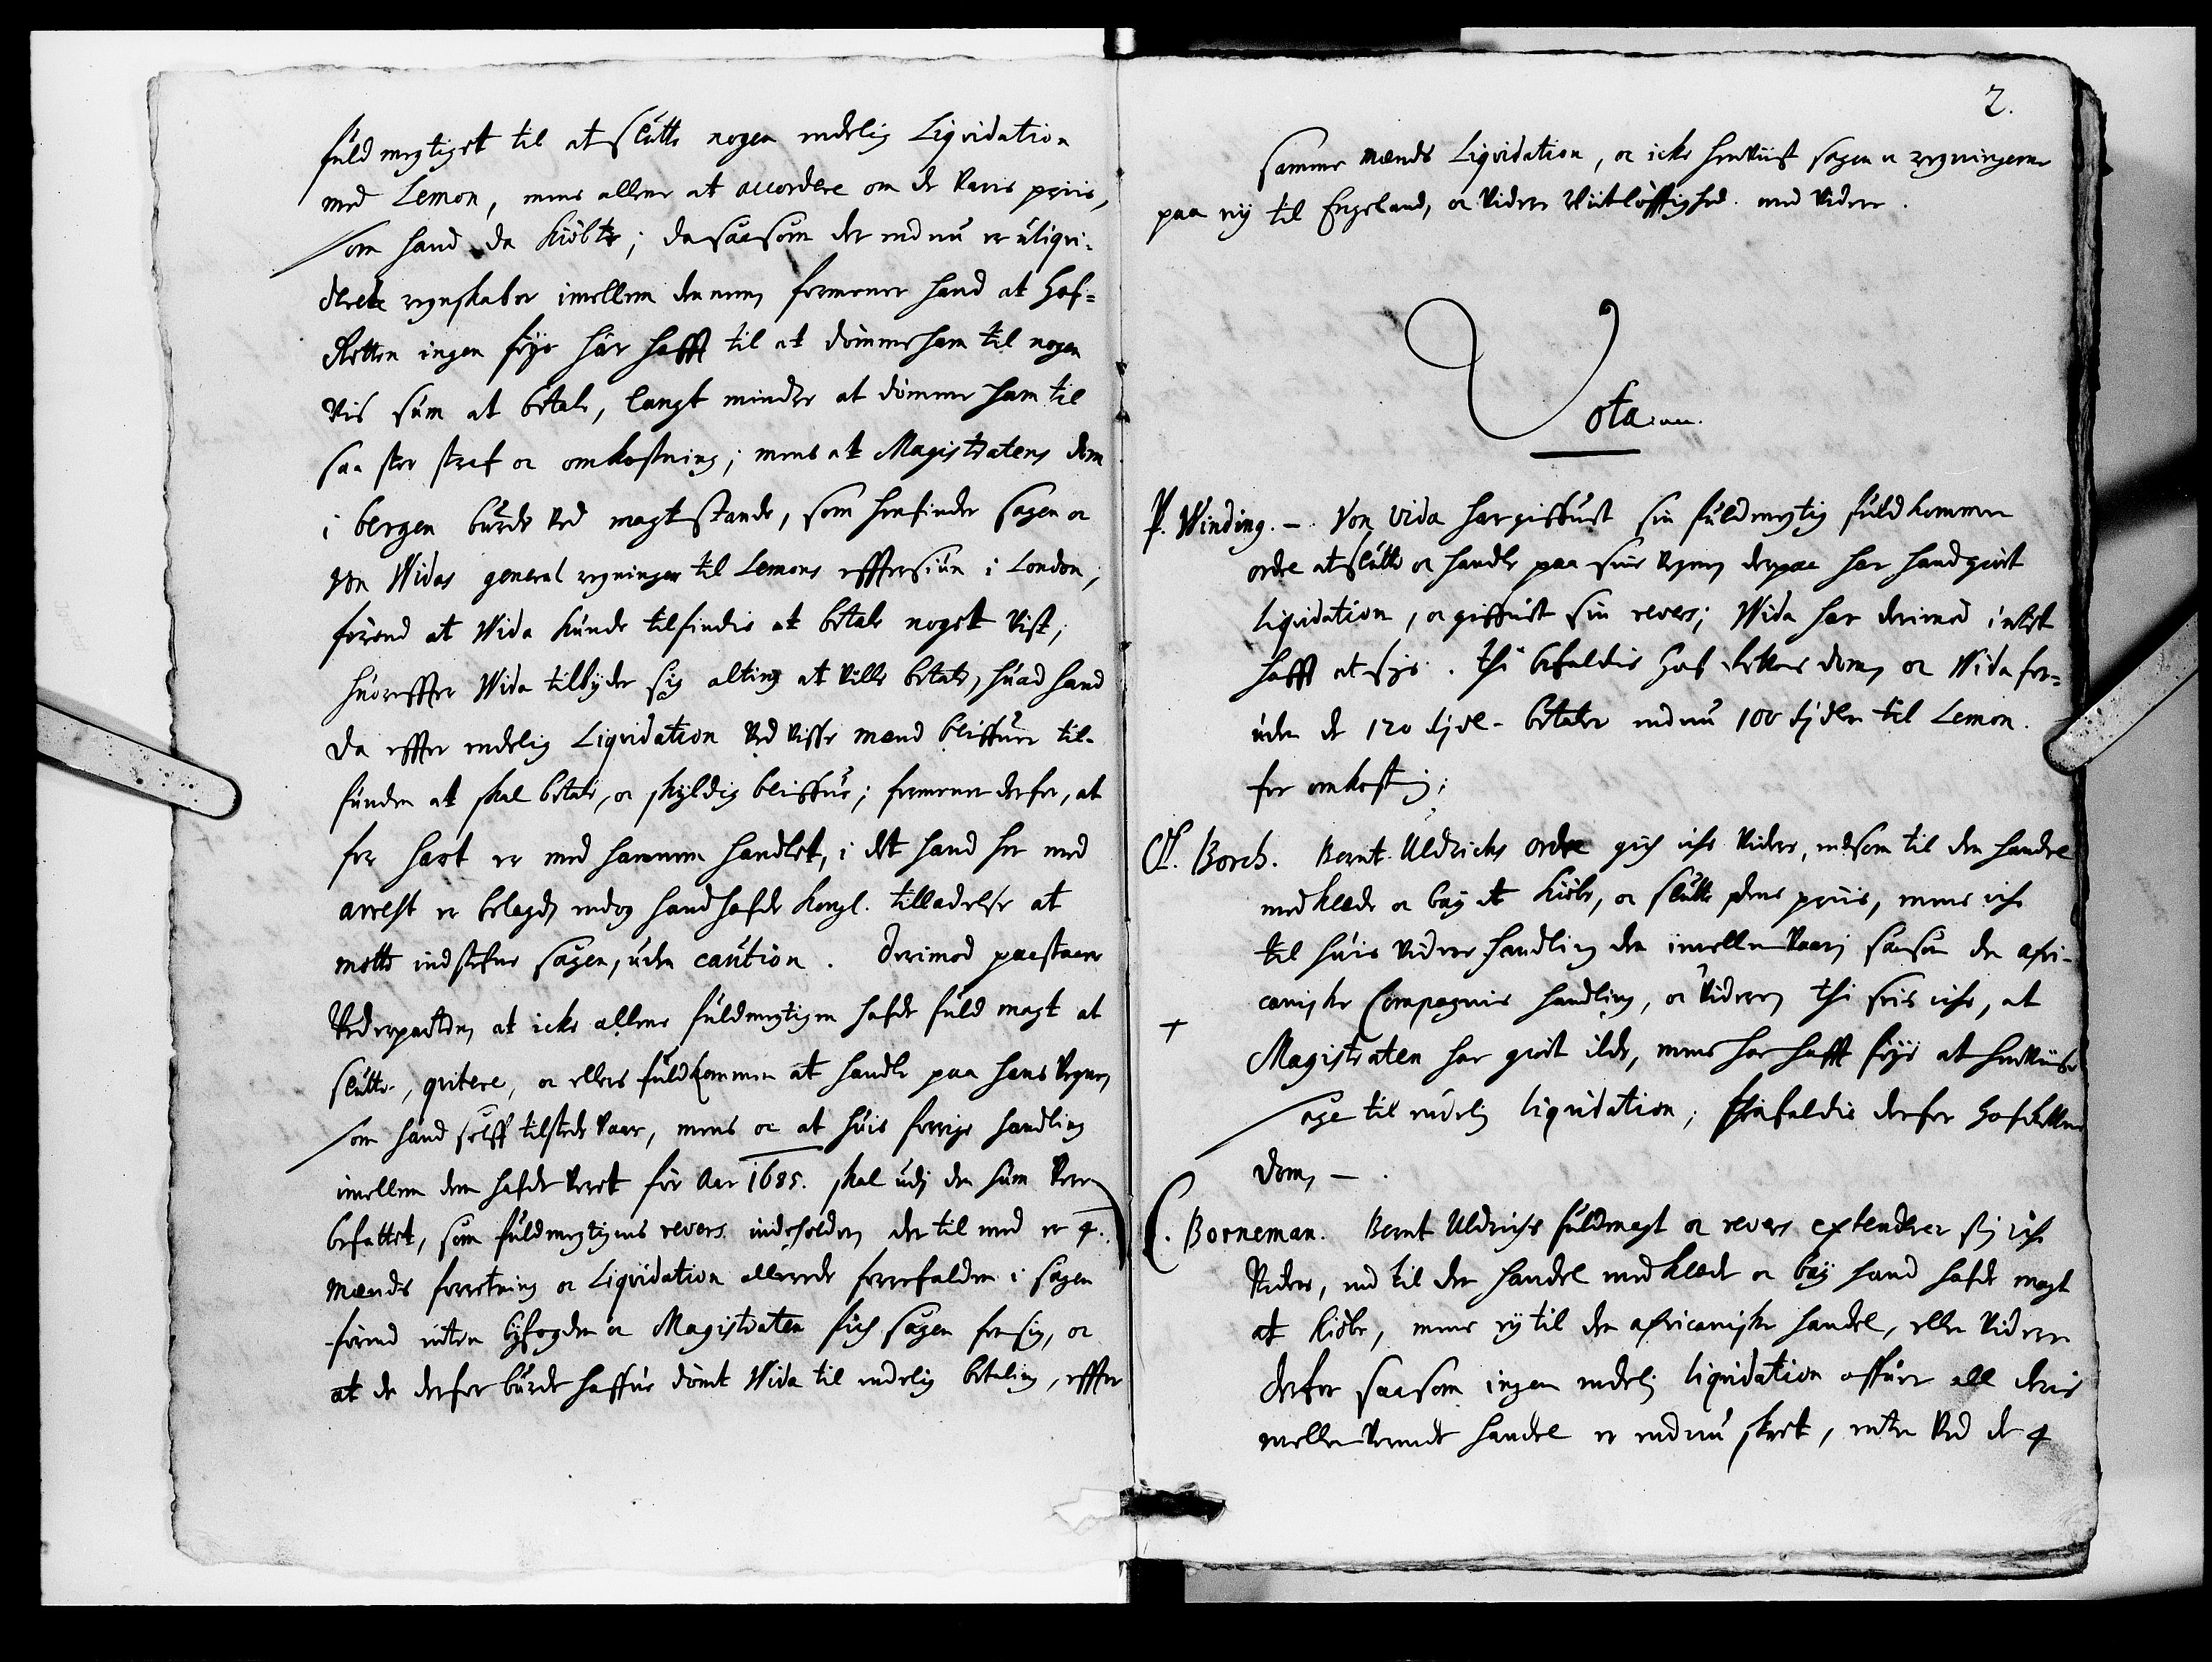 fuldmegtiget til at slutte nogen endelig Liqvidation
med Lemon, mens allene at accordere om de Varis priis,
som hand da kiøbte; da saasom der endnu er uliqvi-
derete regnskaber imellem dennem, formener hand at Hof-
Retten ingen føye har hafft til at dømme ham til nogen
vis sum at betale, langt mindre at dømme ham til
saa stor straf oc omkostning; mens at Magistratens dom
i bergen burde ved magt stande, som henfinder sagen oc
von Widas general regninger til Lemons effersiun i London,
førend at Wida kunde tilfindis at betale noget vist;
huoreffter Wida tilbyder sig alting at ville betale, huad hand
da effter endelig Liqvidation ved visse mænd bliffuer til-
funden at skal betale, oc skyldig bliffue; formener derfor, at
for hart er med hannem handlet, i det hand her med
arrest er belagd, endog hand hafde Kongl. tilladelse at
motte indstefne sagen, uden caution. Derimod paastaar
Vederparten, at icke allene fuldmegtigen hafde fuld magt at
slutte, qvitere, oc ellers fuldkommen at handle paa hans vegne,
som hand self tilstede vaar, mens oc at huis forrige handling
imellem dem hafde veret før Aar 1685. skal udj den sum vere
befattet, som fuldmegtigens revers indeholder, der til med er 4.
mænds forretning oc Liqvidation allerede forrefalden i sagen
førend enten byfogden oc Magistraten fich sagen for sig, oc
at de derfor burde haffue dømt Wida til endelig betaling, effter
2.
samme mænds Liqvidation, oc icke henviist sagen oc regningerne
paa ny til Engeland, oc videre Viitløfftighed. med videre.
Vota
P. Winding. - Von Vida har giffuet sin fuldmegtig fuldkommen
ordre at slutte oc handle paa sine vegne, derpaa har hand giort
liqvidation, oc giffuet sin revers; Wida har derimod intet
hafft at sige. thi befaldis Hof Rettens dom, oc Wida for-
uden de 120 rixdl. betaler endnu 100 rixdlr til Lemon.
for omkostning;
Ol. Borch. Bernt Uldrichs ordre gich icke videre, end som til den handel
med klæde oc bay at kiøbe, oc slutte dens priis, mens icke
til huis videre handling der imellem vaar, saasom den afri-
caniske Compagnies handling, oc videre, thi seeis icke, at
+
Magistraten har giort ilde, mens har hafft føye at henviise
sage til endelig liqvidation; frafaldis derfor Hofrettens
dom, -
C. Borneman. Bernt Uldrichs fuldmagt oc revers extenderer sig icke
videre, end til den handel med klæde oc bay hand hafde magt
at kiøbe, mens ey til den africaniske handel, eller videre
derfor saasom ingen endelig liqvidation offuer all deris
mellemverende handel er endnu skeet, enten ved de 4